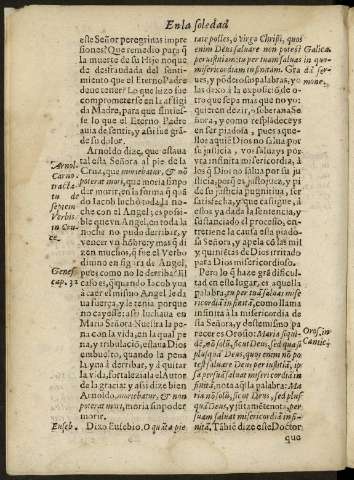 En la soledad
este Señor peregrinas impre
siones? Que remedio para q̃
la muerte de su Hijo no que
de desfraudada del senti-
miento que el Eterno Padre
deve tener? Lo que hizo fue
comprometerse en la afligi
da Madre, para que sinties-
se lo que el Eterno Padre
avia de sentir, y assi fue grã-
de su dolor.
Arnoldo dize, que estava
tal esta Señora al pie de la
Cruz, que moriebatur, & nõ
poterat mori, que moria sin po
der morir, en la forma q̃ quã
do Iacob luchò toda la no-
che con el Angel; es possi-
ble que vn Angel, en toda la
noche no pudo derribar, y
vencer vn hõbre, y mas q̃ di
zen muchos, q̃ fue el Verbo
divino en figura de Angel,
pues como no le derriba? El
caso es, q̃ quando Iacob yva
à caer el mismo Angel le da
va fuerça, y le tenia porque
no cayesse; assi luchava en
Maria Señora Nuestra la pe-
na con la vida, en la qual pe
na, y tribulacion, estava Dios
embuelto, quando la pena
la yva à derribar, y à quitar
la vida, fortaleziala el Autor
de la gracia; y assi dize bien
Arnoldo, moriebatur, & non
poterat mori, moria sin poder
morir.
Dixo Eusebio. O quãta pie
Arnol.
Carno.
tracta
tu de
septem
Verbis
in Cru
ce.
Genes.
cap. 32
Euseb.
tate polles, ò Virgo Christi, quos
enim Deus salvare non potest
per iustitiam; tu per tuam salvas
misericordiam infinitam. Grã
ves, y poderosas palabras, y
las dexo à la exposiciõ de o-
tro que sepa mas que no yo:
quieren dezir, soberana Se
ñora, y como resplãdeceys
en ser piadosa, pues aque-
llos à quiè Dios no salva por
su justicia, vos salvays por
vra infinita misericordia, à
los q̃ Dios no salva por su ju
sticia, porq̃ es justicia, y pi-
de su justicia punitiva, ser
satisfecha, y que castigue, à
essos ya dada la sentencia, y
sustanciado el processo, en-
tretiene la causa essa piado-
sa Señora, y apela cõ las mil
y quiniẽtas de Dios irritado
para Dios misericordioso.
Pero lo q̃ haze grã dificul-
tad en este lugar, es aquella
palabra, tu per tuã salvas mise
ricordiã infinitã, como llama
infinita à la misericordia de
esta Señora, y destemismo pa
recer es Orosio: Maria siqui-
dẽ, nõ solũ, sicut Deus, sed quasi
plusquã Deus, quos enim nõ po
test salvare Deus per iustitiã, ip
sa per suã salvat misericordiã in
finitã, nota aq̃lla palabra: Ma
ria nõ solũ, sicut Deus, sed plus
quã Deus, y justamẽte nota, per
suã salvat misericordiã infini-
tã. Tãbiẽ dize este Doctor
Oros. in
Cantic.
que